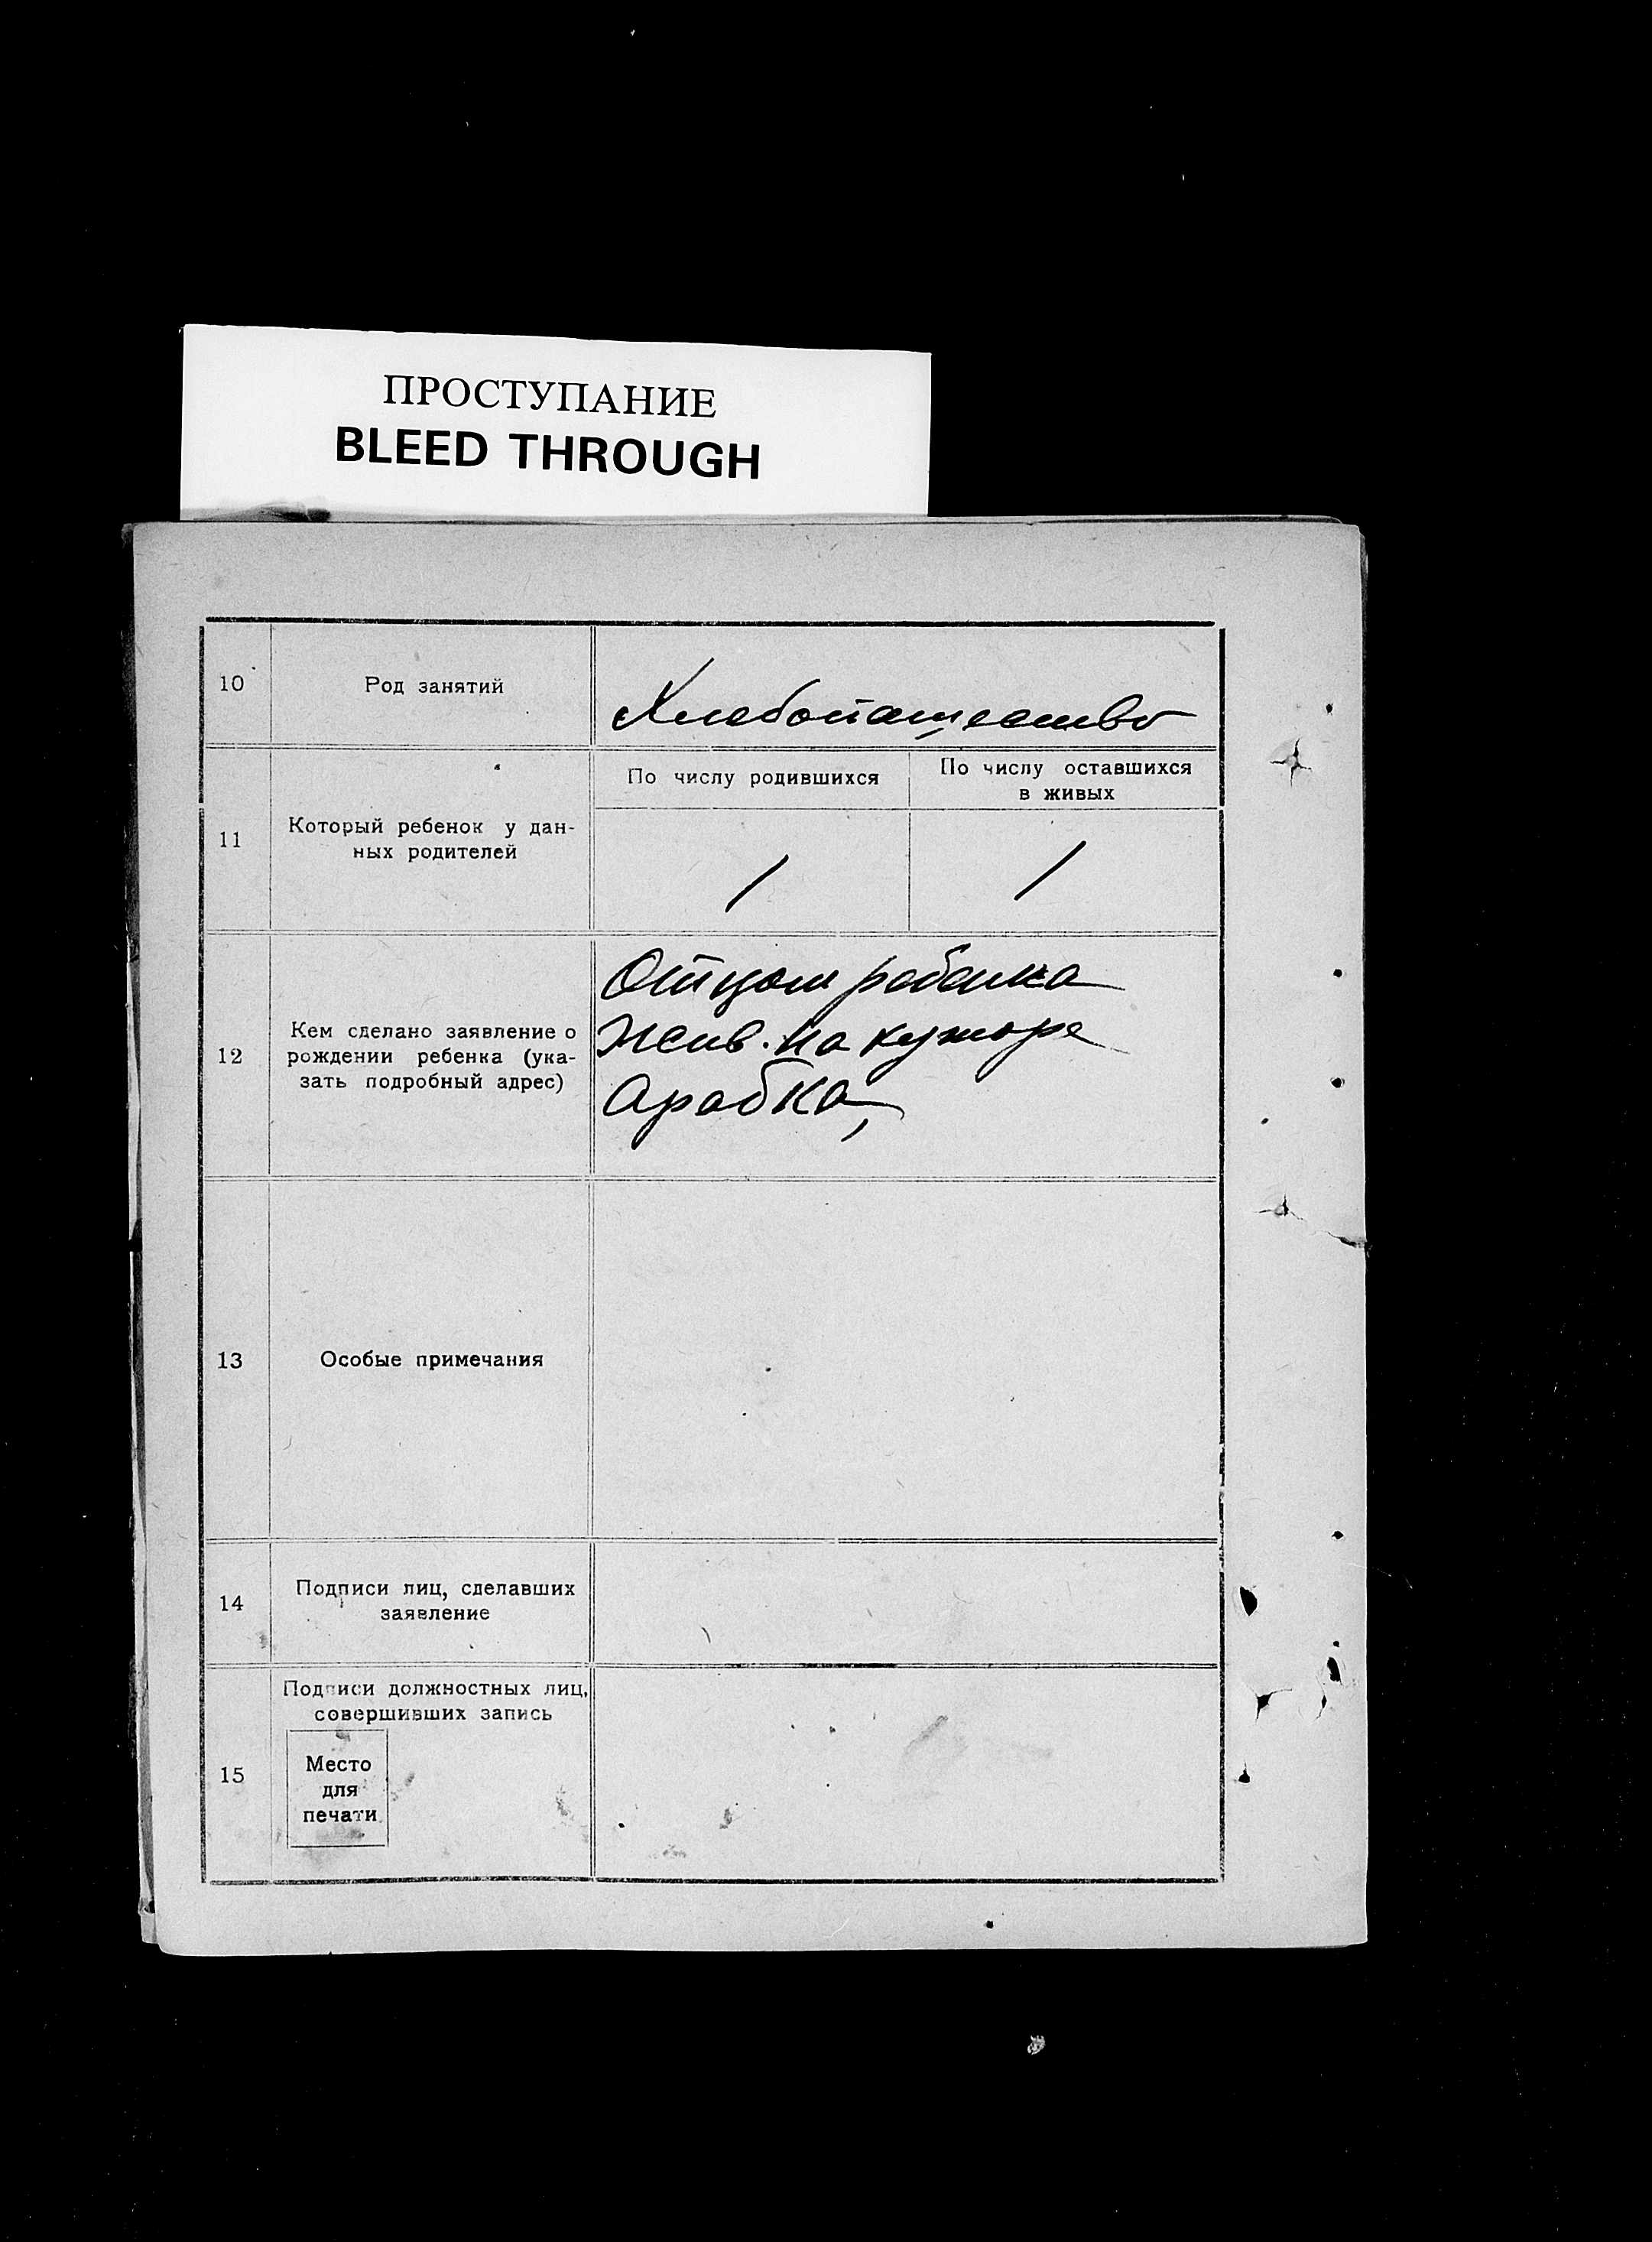 ПРОСТУПАНИЕ
BLEED THROUGH
10
Род занятий
Хлебопашество
11
Который ребенок у дан-
ных родителей
По числу родившихся
По числу оставшихся
в живых
1
1
12
Кем сделано заявление о
рождении ребенка (ука-
зать подробный адрес)
Отцом ребенка
Жив. на хуторе
Арабка,
13
Особые примечания
14
Подписи лиц, сделавших
заявление
15
Подписи должностных лиц,
совершивших запись
Место
для
печати